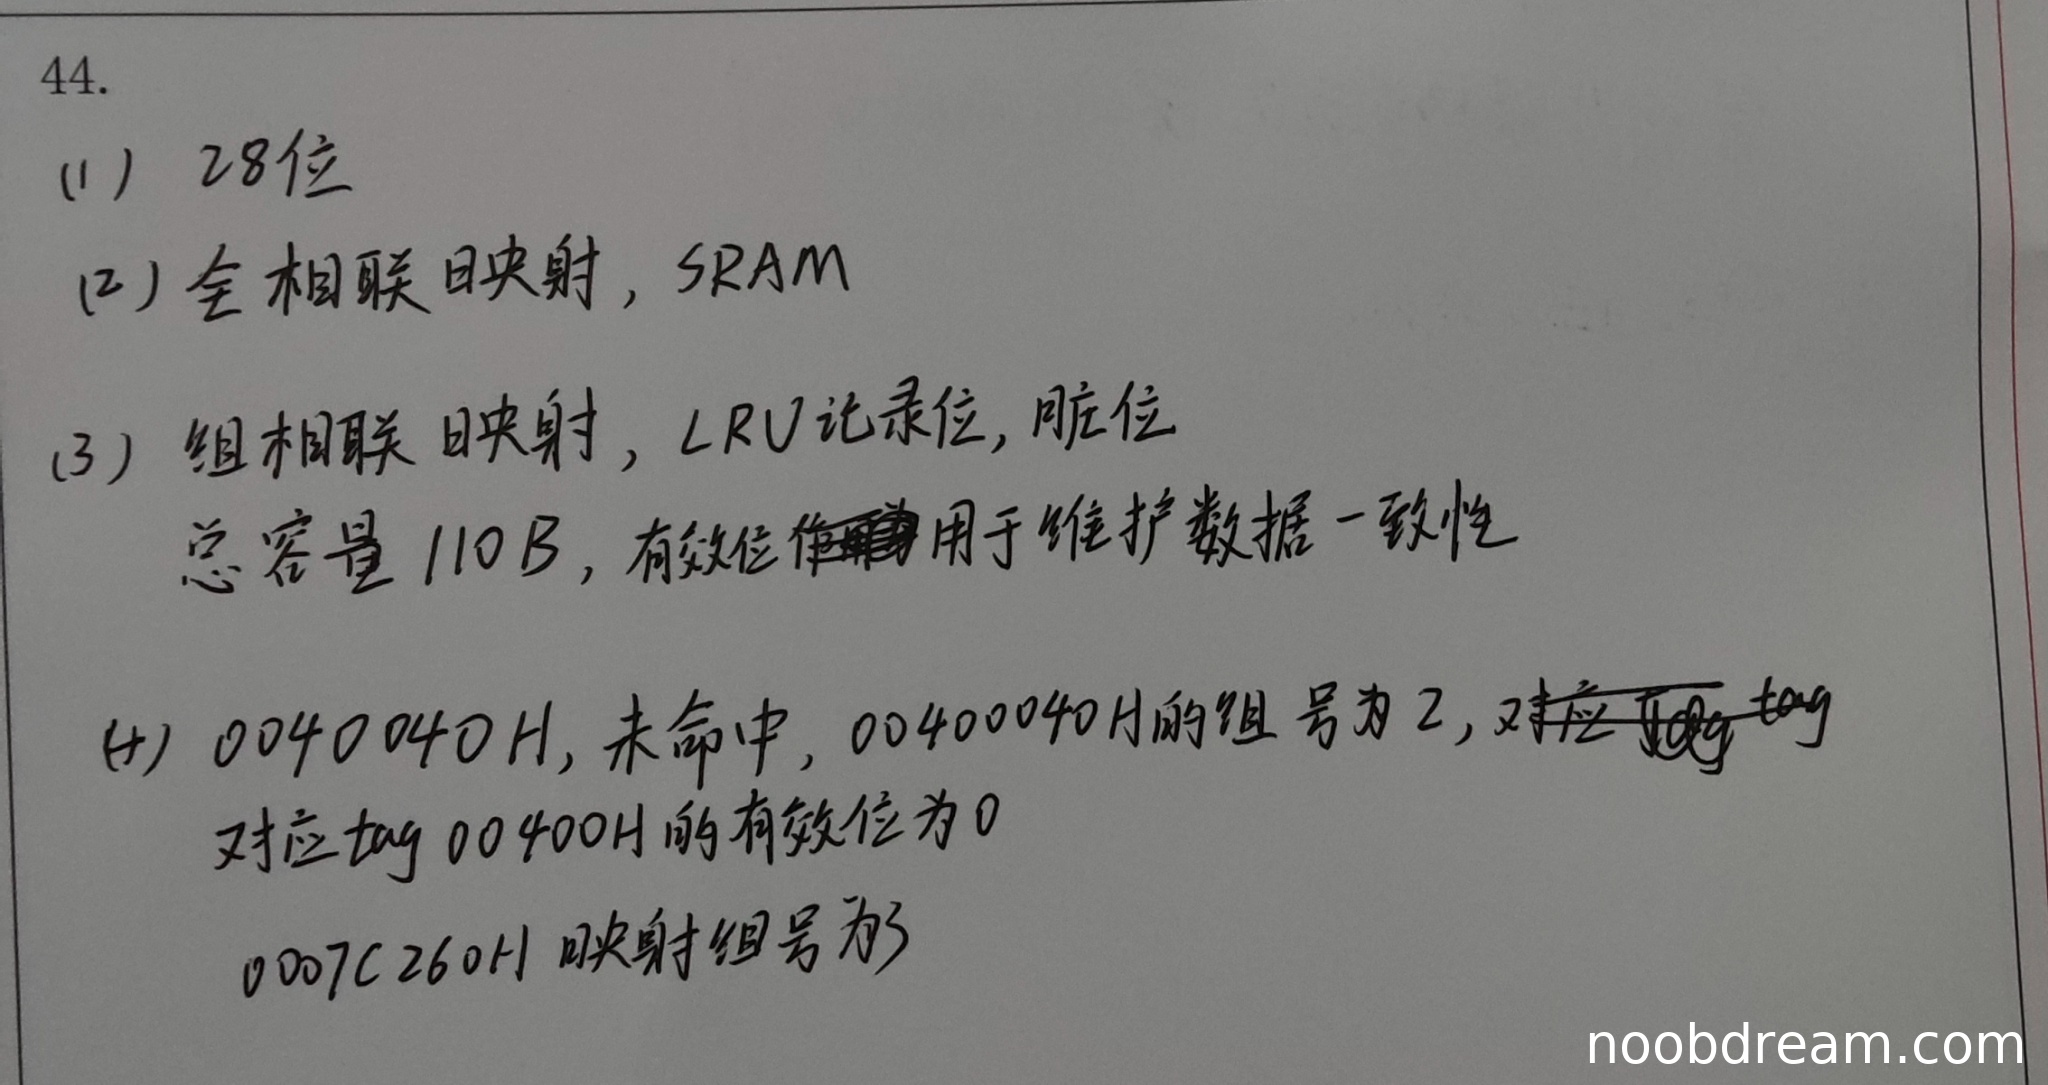 44.
(1) 28位
(2) 全相联映射, SRAM
(3) 组相联映射, LRU记录位, 脏位
总容量 110B, 有效位用于维护数据一致性
(4) 0040040H, 未命中, 00400040H的组号为2, tag
对应tag 00400H的有效位为0
0007C260H 映射组号为3
noobdream.com